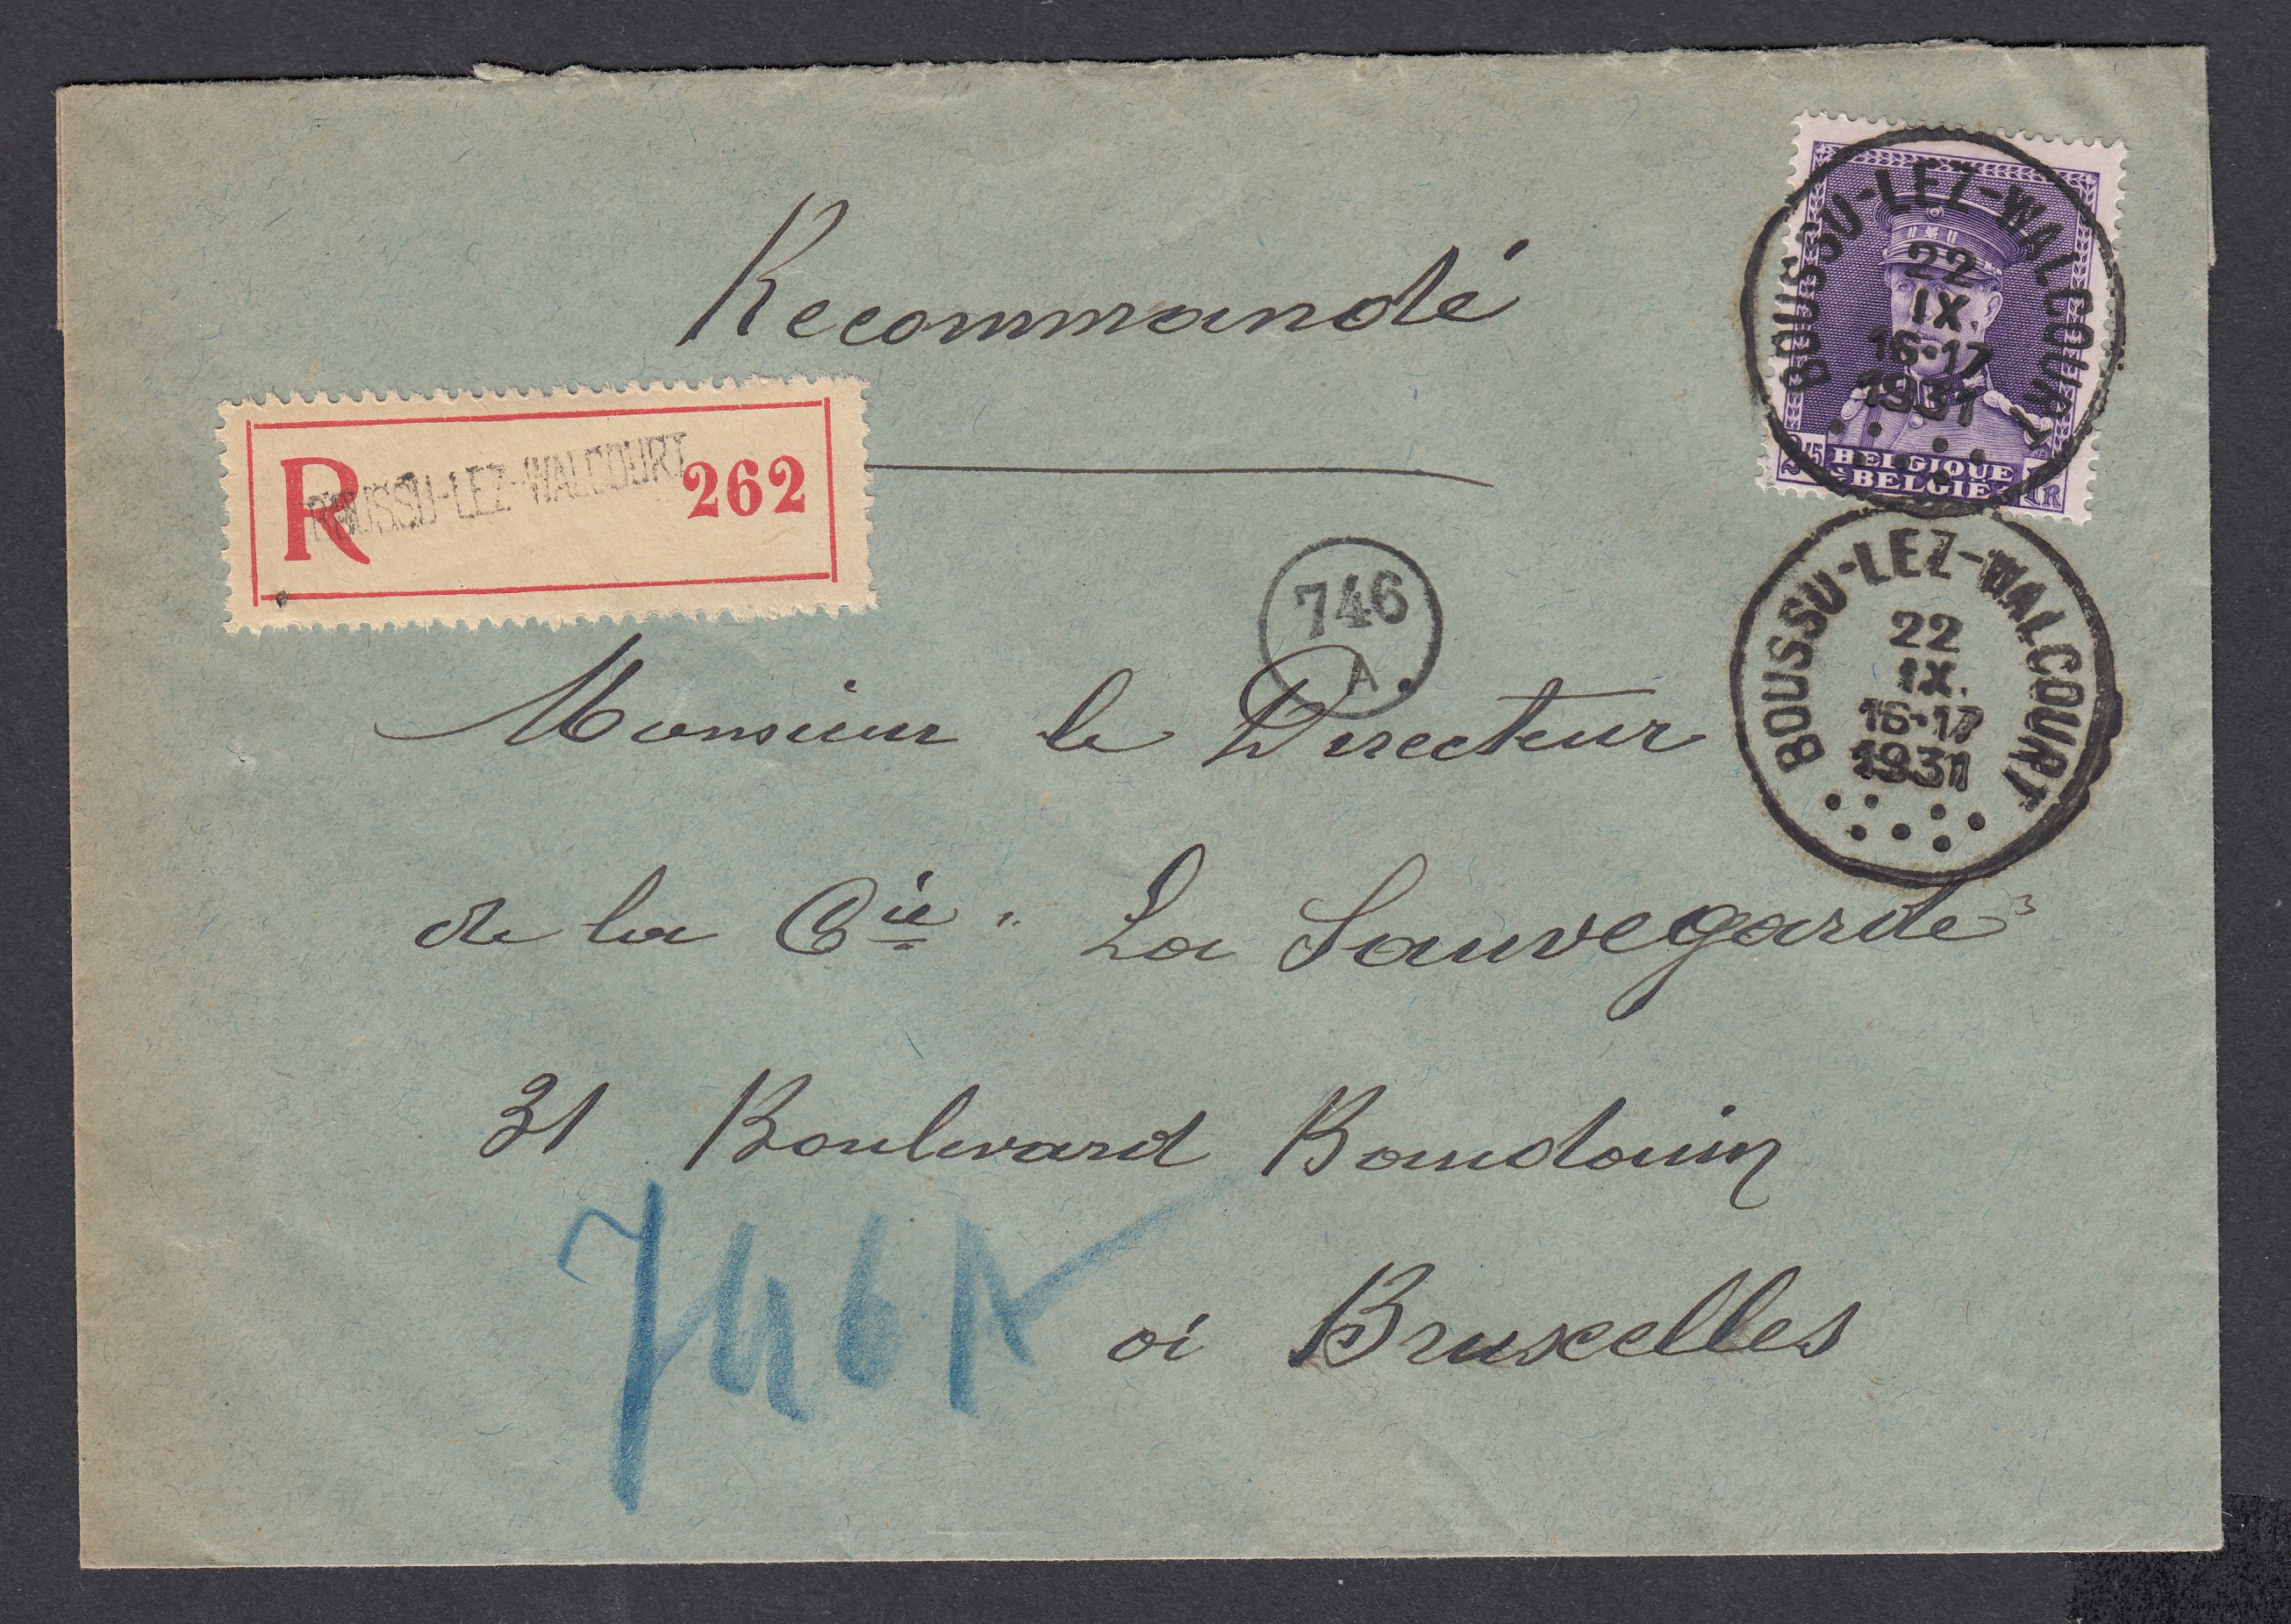 Recommandé
BOUSSU-LEZ-WALCOURT
22
IX.
16-17
1931
BELGIQUE
BELGIË
R BOUSSU-LEZ-WALCOURT 262
746
A.
BOUSSU-LEZ-WALCOURT
22
IX.
16-17
1931
Monsieur le Directeur
de la Cie "La Sauvegarde"
31 Boulevard Baudouin
746A
à Bruxelles